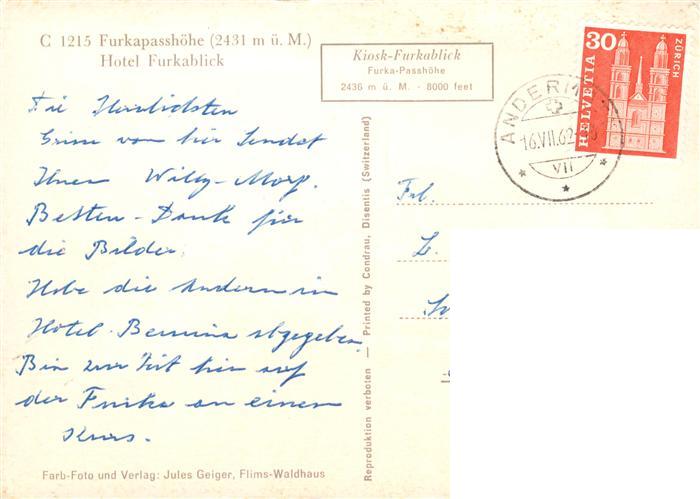 C 1215 Furkapasshöhe (2431 m ü. M.)
Hotel Furkablick
Kiosk-Furkablick
Furka-Passhöhe
2436 m ü. M. - 8000 feet
30
HELVETIA
ZÜRICH
ANDERM
16.VII.62
VII
Die Herzlichsten
Grüsse von hier Sendet
Ihnen Willy-
Besten-Dank für
die Bilder.
Habe die Andern in
Hotel-Bernina abgegeben
Bin zur Zeit hier auf
der Furka an einem
Kurs.
Frl.
Farb-Foto und Verlag: Jules Geiger, Flims-Waldhaus
Reproduktion verboten — Printed by Condrau, Disentis (Switzerland)